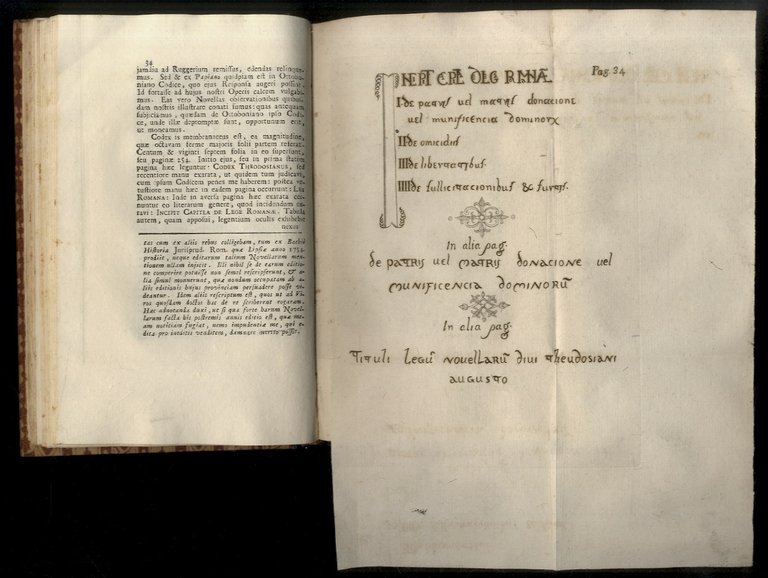 34
jamdiu ad Ruggerium remissas, edendas relinque-
mus. Sed & ex Papiano quidpiam est in Ottobo-
niano Codice, quo ejus Responsa augeri possint.
Id fortasse ad hujus nostri Operis calcem vulgabi-
mus. Eas vero Novellas observationibus quibus-
dam nostris illustrare conati sumus: quas antequam
subjiciamus, quædam de Ottoboniano ipso Codi-
ce, unde illæ depromptæ sunt, opportunum erit,
ut moneamus.
Codex is membranaceus est, ea magnitudine,
quæ octavam ferme majoris folii partem referat.
Centum & viginti septem folia in eo supersunt,
seu paginæ 254. Initio ejus, seu in prima statim
pagina hæc leguntur: CODEX THEODOSIANUS, sed
recentiore manu exarata, ut quidem tum judicavi,
cum ipsum Codicem penes me haberem: postea ve-
tustiore manu hæc in eadem pagina occurrunt: LEX
ROMANA: Inde in aversa pagina hæc exarata con-
nuntur eo literarum genere, quod incidendum cu-
ravi: INCIPIT CAPITLA DE LEGE ROMANÆ. Tabula
autem, quam apposui, legentium oculis exhibebit
nexus
tas cum ex aliis rebus colligebam, tum ex Bachii
Historia Jurisprud. Rom. quæ Lipsiæ anno 1754.
prodiit, neque editarum talium Novellarum men-
tionem ullam injicit. Illi nihil se de earum editio-
ne comperire potuisse non semel rescripserunt, & a-
lia simul monuerunt, quæ nondum occupatam ab a-
liis editionis hujus provinciam persuadere posse vi-
deantur. Idem aliis rescriptum est, quos ut ad Vi-
ros quosdam doctos hac de re scriberent rogaram.
Hæc adnotanda duxi, ut si qua forte harum Novel-
larum facta his postremis annis editio est, quæ me-
am notitiam fugiat, nemo impudentiæ me, qui e-
dita pro ineditis venditem, damnare merito possit.
Pag. 34
INCPT CPL DE LEG RMNÆ
I de patris uel matris donacione
uel munificencia dominorum
II de omicidiis
III de libertatibus.
IIII de sullicitacionibus & furtis.
In alia pag.
de patris uel matris donacione uel
munificencia dominorū
In alia pag.
Tituli legū nouellarū diui theudosiani
augusto